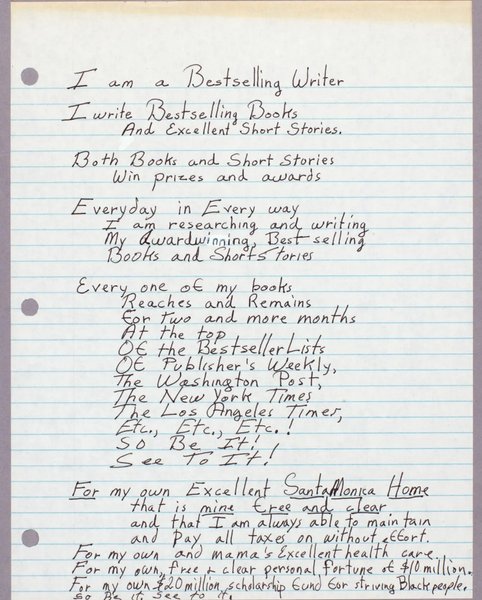 I am a Bestselling Writer
I write Bestselling Books
And Excellent Short Stories.
Both Books and Short Stories
Win prizes and awards
Everyday in Every way
I am researching and writing
My Awardwinning, Best selling
Books and Short Stories
Every one of my books
Reaches and Remains
For two and more months
At the top
Of the Bestseller Lists
Of Publisher's Weekly,
The Washington Post,
The New York Times
The Los Angeles Times,
Etc., Etc., Etc.!
So Be It!
See To It!
For my own Excellent Santa Monica Home
that is mine free and clear
and that I am always able to maintain
and Pay all taxes on without effort.
For my own and mama's Excellent health care.
For my own, free & clear personal fortune of $10 million.
For my own $20 million scholarship fund for striving Black people.
So Be it. See to it.